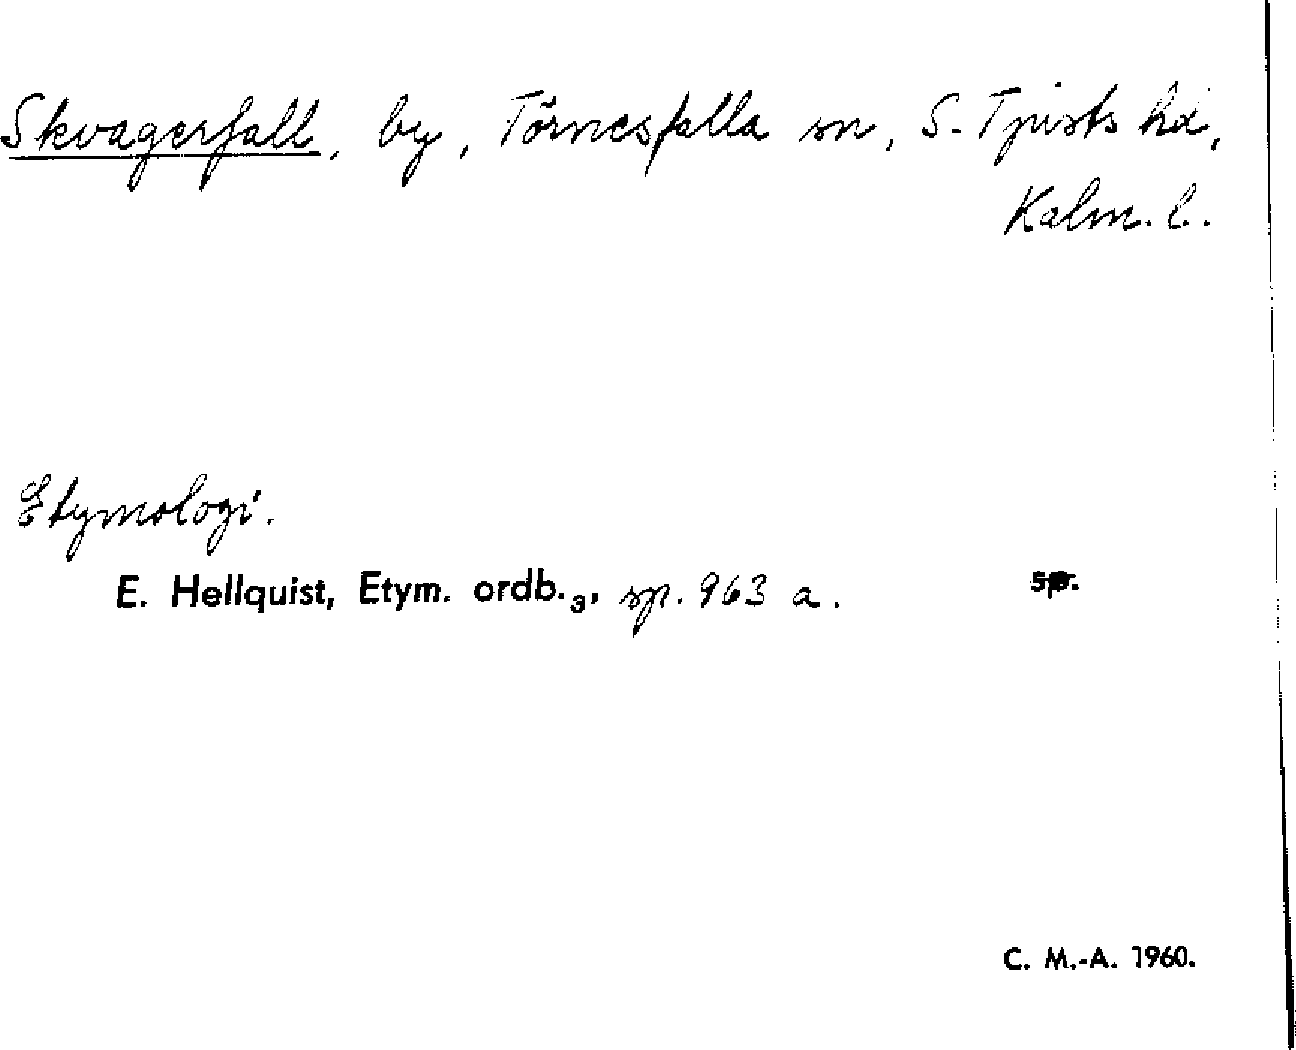 Skvagerfall, by, Törnesfalla sn, S. Tjusts hd,
Kalm. l.
Etymologi.
E. Hellquist, Etym. ordb.3, sp. 963 a. sp.
C. M.-A. 1960.